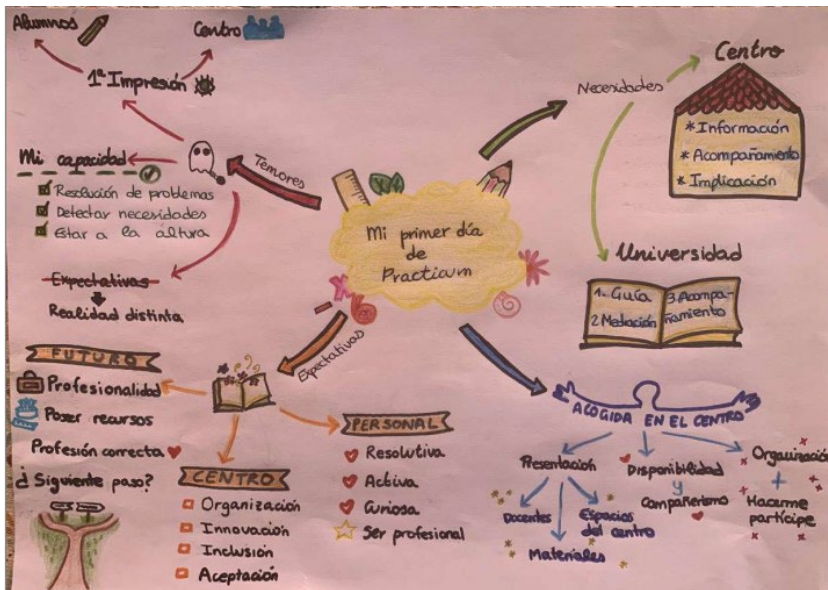 Mi primer día
de
Practicum
Temores
1ª Impresión
Alumnos
Centro
Mi capacidad
Resolución de problemas
Detectar necesidades
Estar a la altura
Expectativas
Realidad distinta
Necesidades
Centro
* Información
* Acompañamiento
* Implicación
Universidad
1. Guía
2 Mediación
3 Acompa-
ñamiento
Expectativas
FUTURO
Profesionalidad
Poseer recursos
Profesión correcta
¿Siguiente paso?
CENTRO
Organización
Innovación
Inclusión
Aceptación
PERSONAL
Resolutiva
Activa
Curiosa
Ser profesional
ACOGIDA EN EL CENTRO
Presentación
Docentes
Materiales
Espacios
del centro
Disponibilidad
y
Compañerismo
Organización
+
Hacerme
partícipe